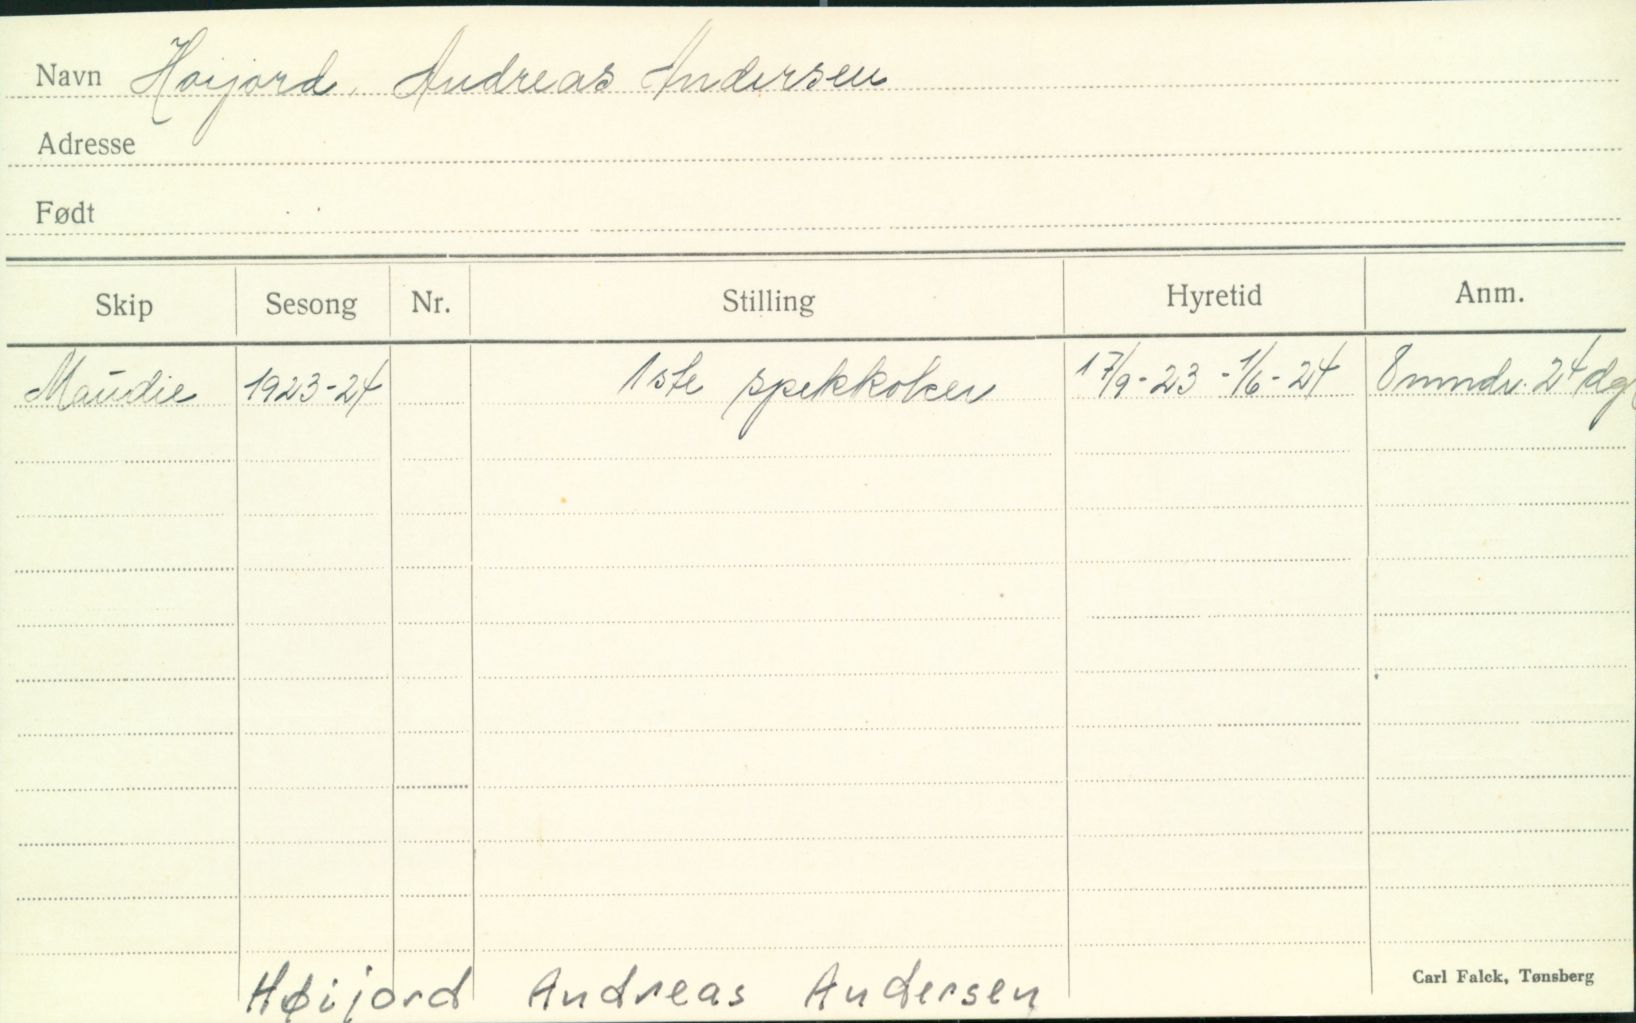 Navn Høijord, Andreas Andersen
Adresse
Født
Skip Sesong Nr. Stilling Hyretid Anm.
Maudie 1923-24 1ste spekkoker 17/9-23 - 1/6-24 8 mndr. 24 dg
Høijord Andreas Andersen
Carl Falck, Tønsberg